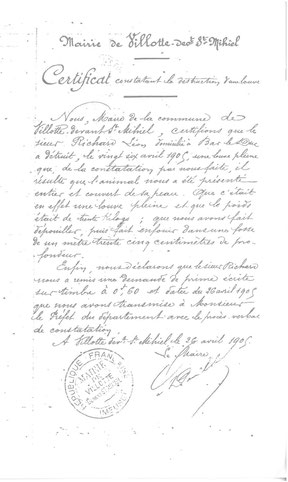 Mairie de Villotte-devt St Mihiel
Certificat constatant la destruction d'une louve
Nous, Maire de la commune de
Villotte devant St Mihiel, certifions que le
sieur Richard Léon domicilié à Bar le Duc
a détruit, le vingt six avril 1905, une louve pleine
que, de la constatation par nous faite, il
résulte que l'animal nous a été présenté
entier et couvert de sa peau. Que c'était
en effet une louve pleine et que le poids
était de trente kilogs ; que nous avons fait
dépouiller, puis fait enfouir dans une fosse
de un mètre trente cinq centimètres de pro-
fondeur.
Enfin, nous déclarons que le sieur Richard
nous a remis une demande de prime écrite
sur timbre à 0f,60 et datée du 26 avril 1905
que nous avons transmise à Monsieur
le Préfet du département avec le procès verbal
de constatation.
A Villotte devt St Mihiel le 26 avril 1905
Le Maire,
REPUBLIQUE FRANÇAISE
MAIRIE
DE
VILLOTTE
(MEUSE)